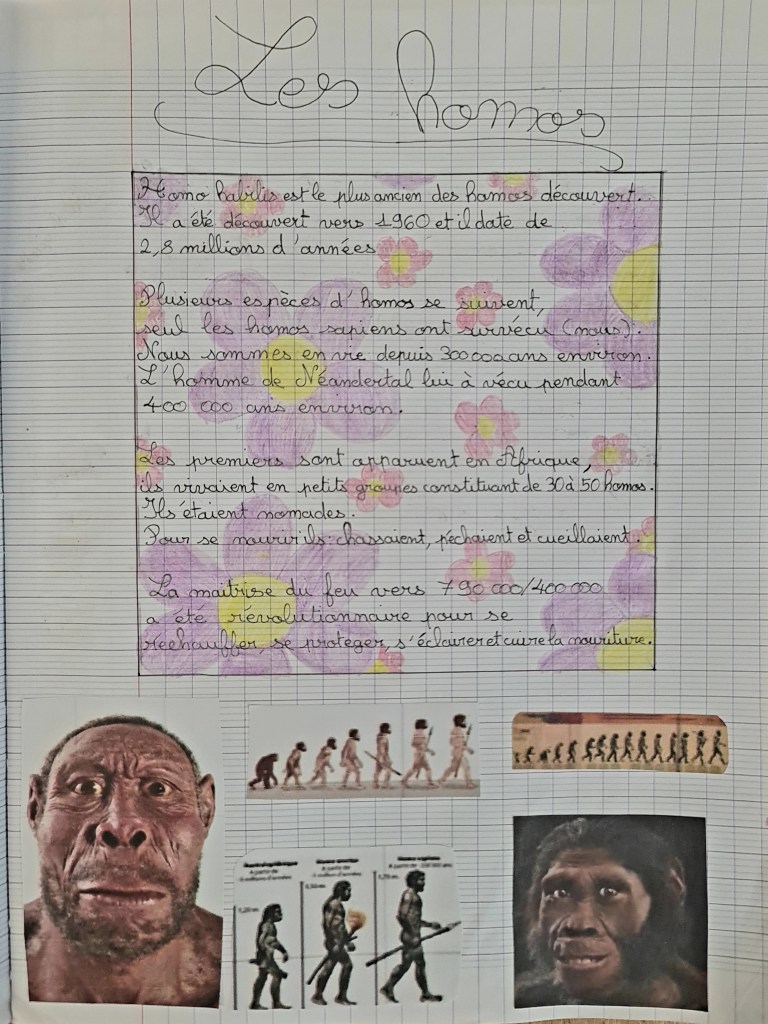 Les homos
Homo habilis est le plus ancien des homos découvert.
Il a été découvert vers 1960 et il date de
2,8 millions d'années
Plusieurs espèces d'homos se suivent,
seul les homos sapiens ont survécu (nous).
Nous sommes en vie depuis 300 000 ans environ.
L'homme de Néandertal lui à vécu pendant
400 000 ans environ.
Les premiers sont apparuent en Afrique,
ils vivaient en petits groupes constituant de 30 à 50 homos.
Ils étaient nomades.
Pour se nourir ils : chassaient, pêchaient et cueillaient.
La maitrise du feu vers 790 000/400 000
a été révolutionnaire pour se
reechauffer, se protéger, s'éclairer et cuire la nouriture.
A partir de
A partir de
1,20 m.
1,50 m.
1,70 m.